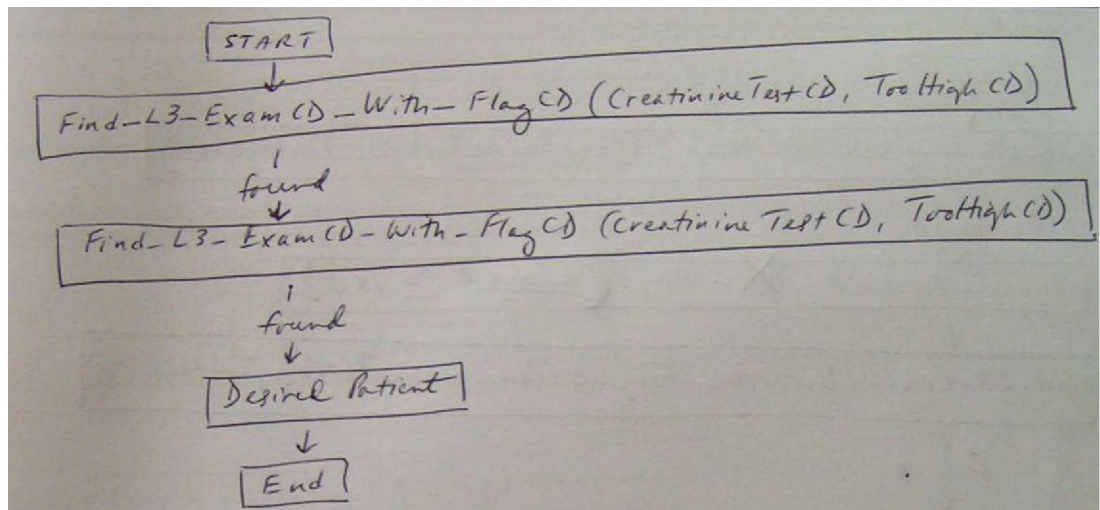 START
Find-L3-ExamCD-With-FlagCD (CreatinineTestCD, TooHighCD)
found
Find-L3-ExamCD-With-FlagCD (CreatinineTestCD, TooHighCD)
found
Desired Patient
End